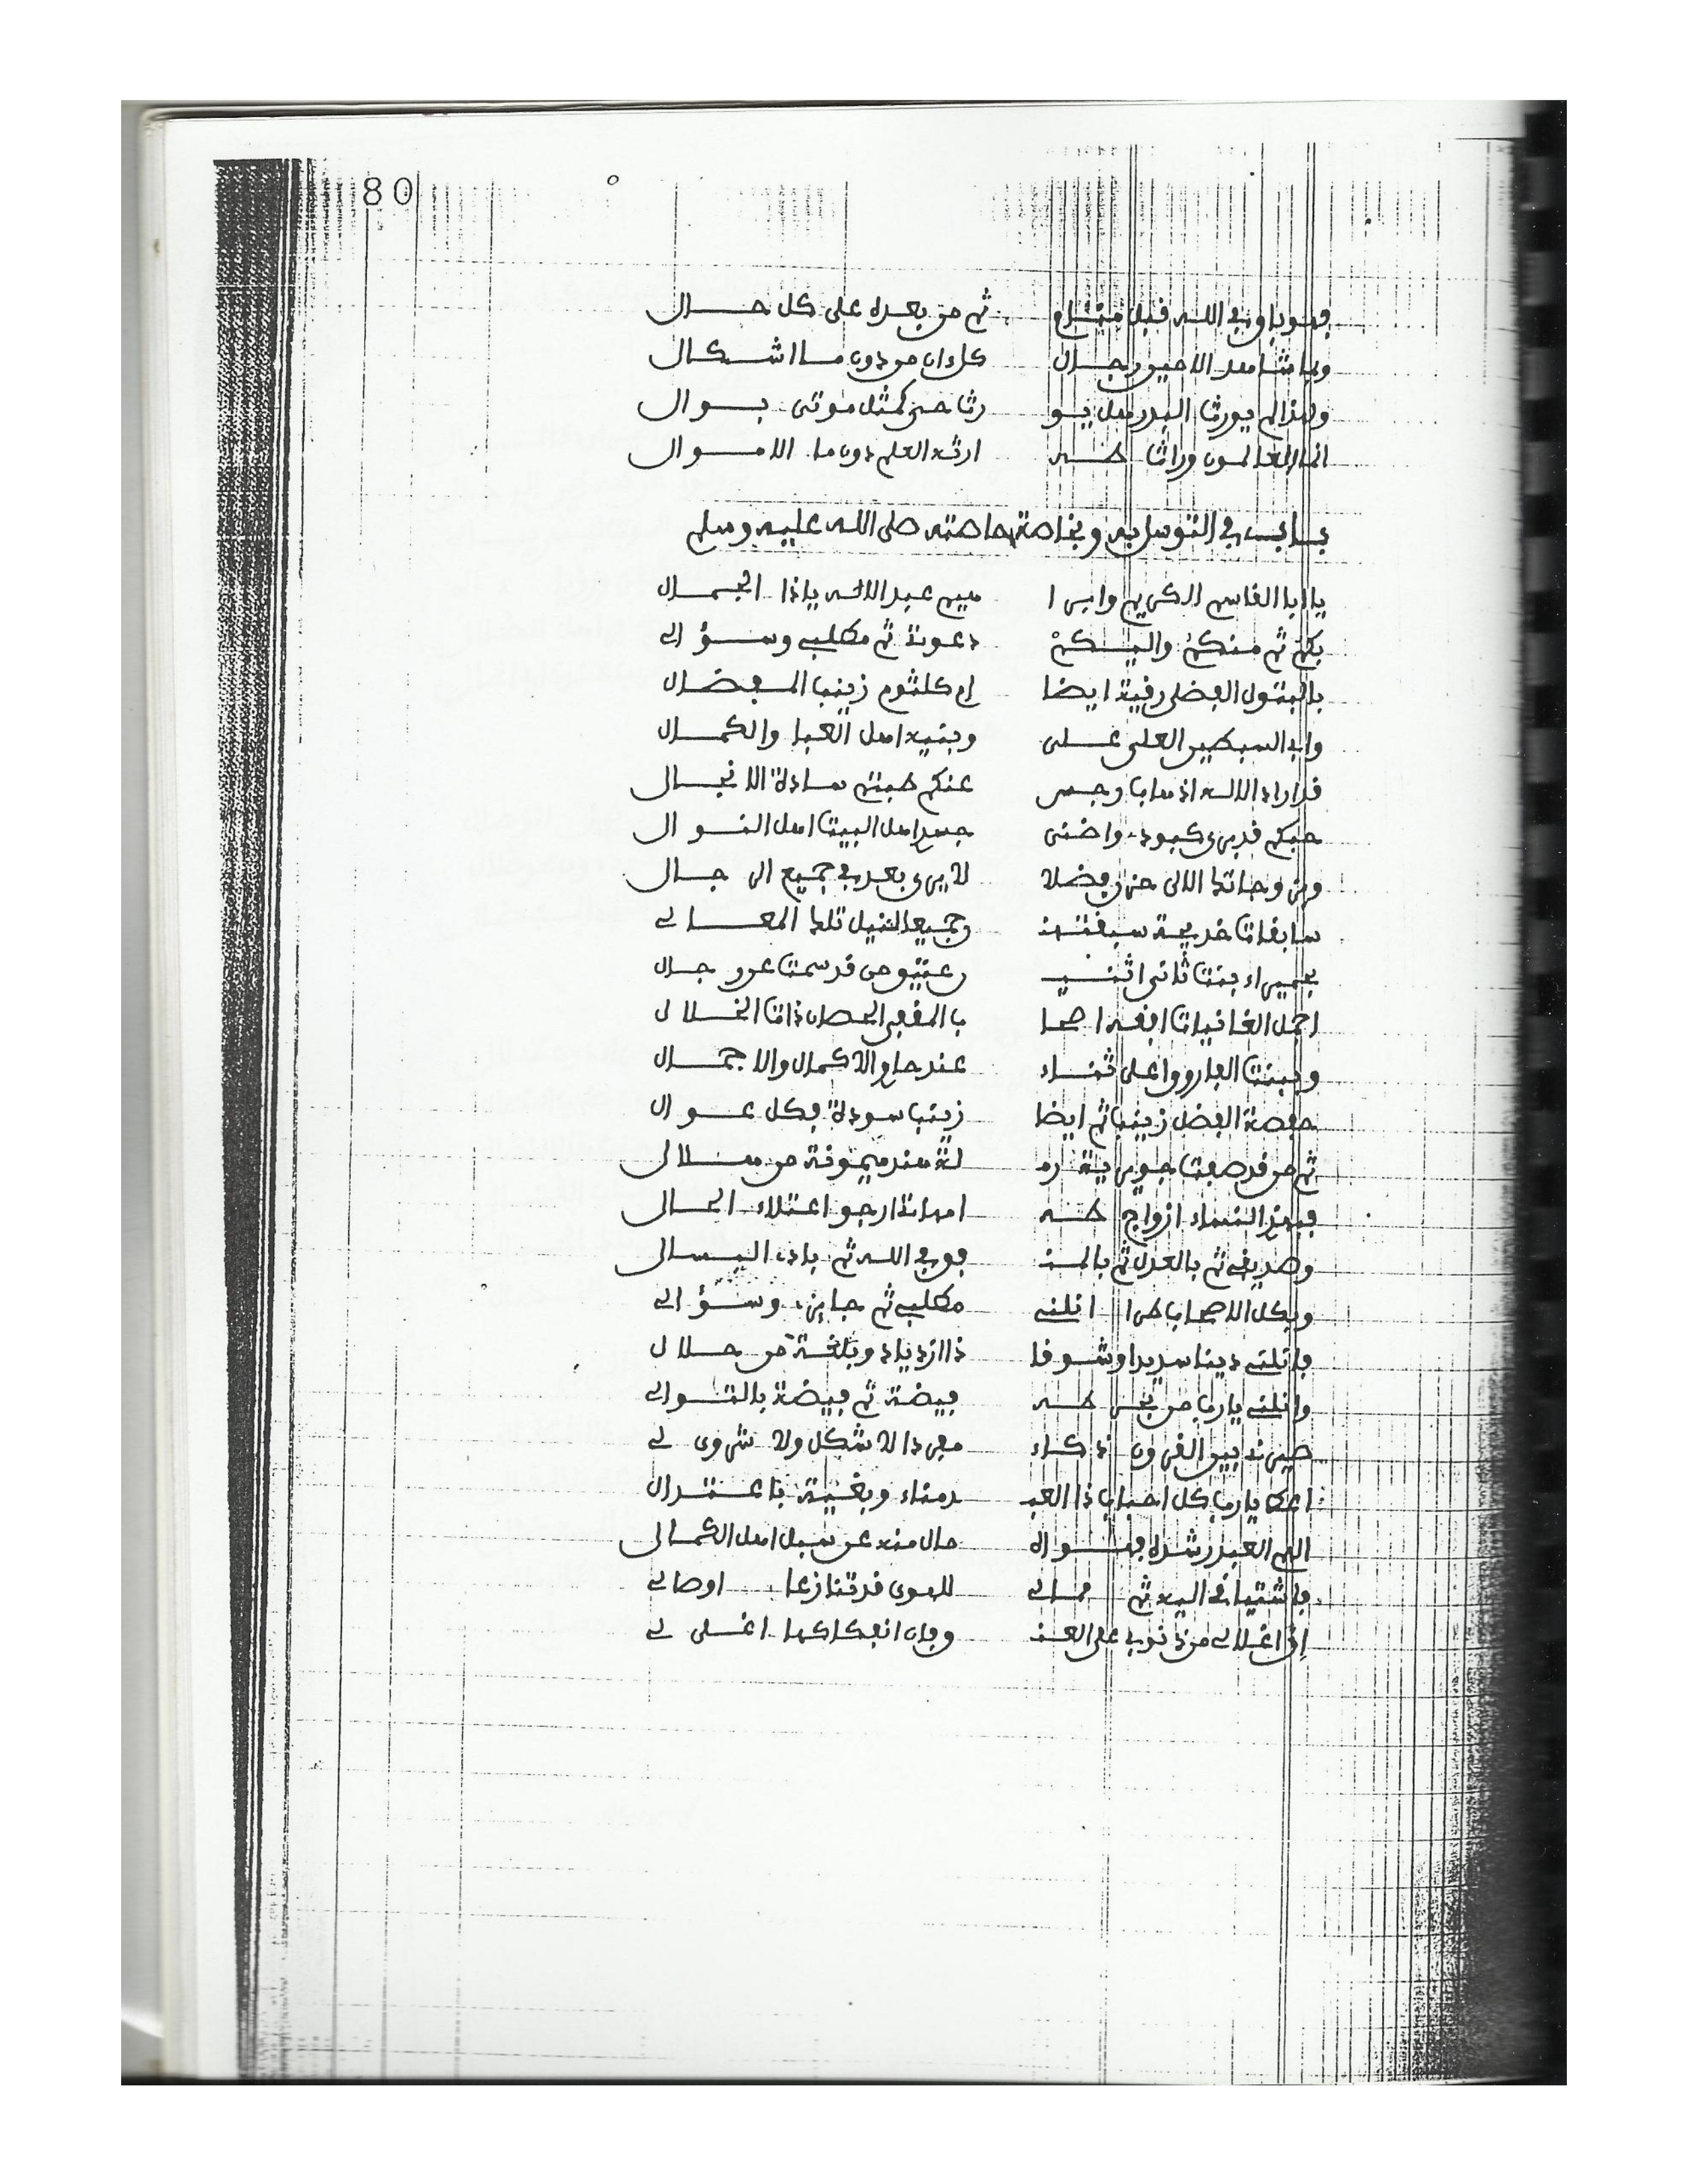 80
ثم من بعده على كل حال
كل ان من دون ما اشكال
ولهذا لم يورث البدر هل يو رثا حي كمثل موتى بوال
انما العالمون وراث طه ارثه العلم دون ما الاموال
باب في التوسل به وبخاصة خاصته صلى الله عليه وسلم
يا ابا القاسم الكريم وابرا هيم عبد الاله ياذا الجمال
بكم ثم منكم واليكم دعوتي ثم مطلبي وسؤالي
بالبتول الفضلى رقية ايضا ام كلثوم زينب المفضال
وابي السبطين العلي علي وبنيه اهل العبا والكمال
قد اراد الاله اذهاب رجس عنكم طبتم سادة الانجال
حبكم قد برى كبودي واضنى جسدي اهل البيت اهل النوال
لا يرى بعد في جميع الرجال
سابقات خديجة سبقتهن وجميعا لنيل تلك المعالي
بحميراء بنت ثاني اثنين عتيق من قد سمت عن رجال
اجمل الغانيات افقه اصحا ب المقفى الحصان ذات الخلال
وببنت الفاروق اعلى ثناء عند حاوي الاكمال والاجمال
حفصة الفضل زينب ثم ايضا زينب سودة بكل عوال
ثم من قد صفت جويرية رم لة هند ميمونة من هلال
فبهذي النساء ازواج طه امهاتي ارجو اعتلاء الحال
وصديقي ثم بالعدل ثم بالمن فق في الله ثم باذي البسال
وبكل الاصحاب طرا انلني مطلبي ثم جابتي وسؤالي
فانلني دينا سديدا وشوقا ذا ازدياد وبلغة من حلال
وانلني يا رب من بحر طه فيضة ثم فيضة بالتوالي
صيرني بين القرون ذكاء مفردا لا شكل ولا شروى لي
اعط يا رب كل احباب ذا العبد مناء وبغية باعتدال
الهم العبد رشده فهواه مال منه عن سبل اهل الكمال
فاشتياقي اليه ثم مالي للهوى قد تنازعا اوصالي
ان اغلالي من ذنوبي على العنق وفان انفكاكها اغلى لي